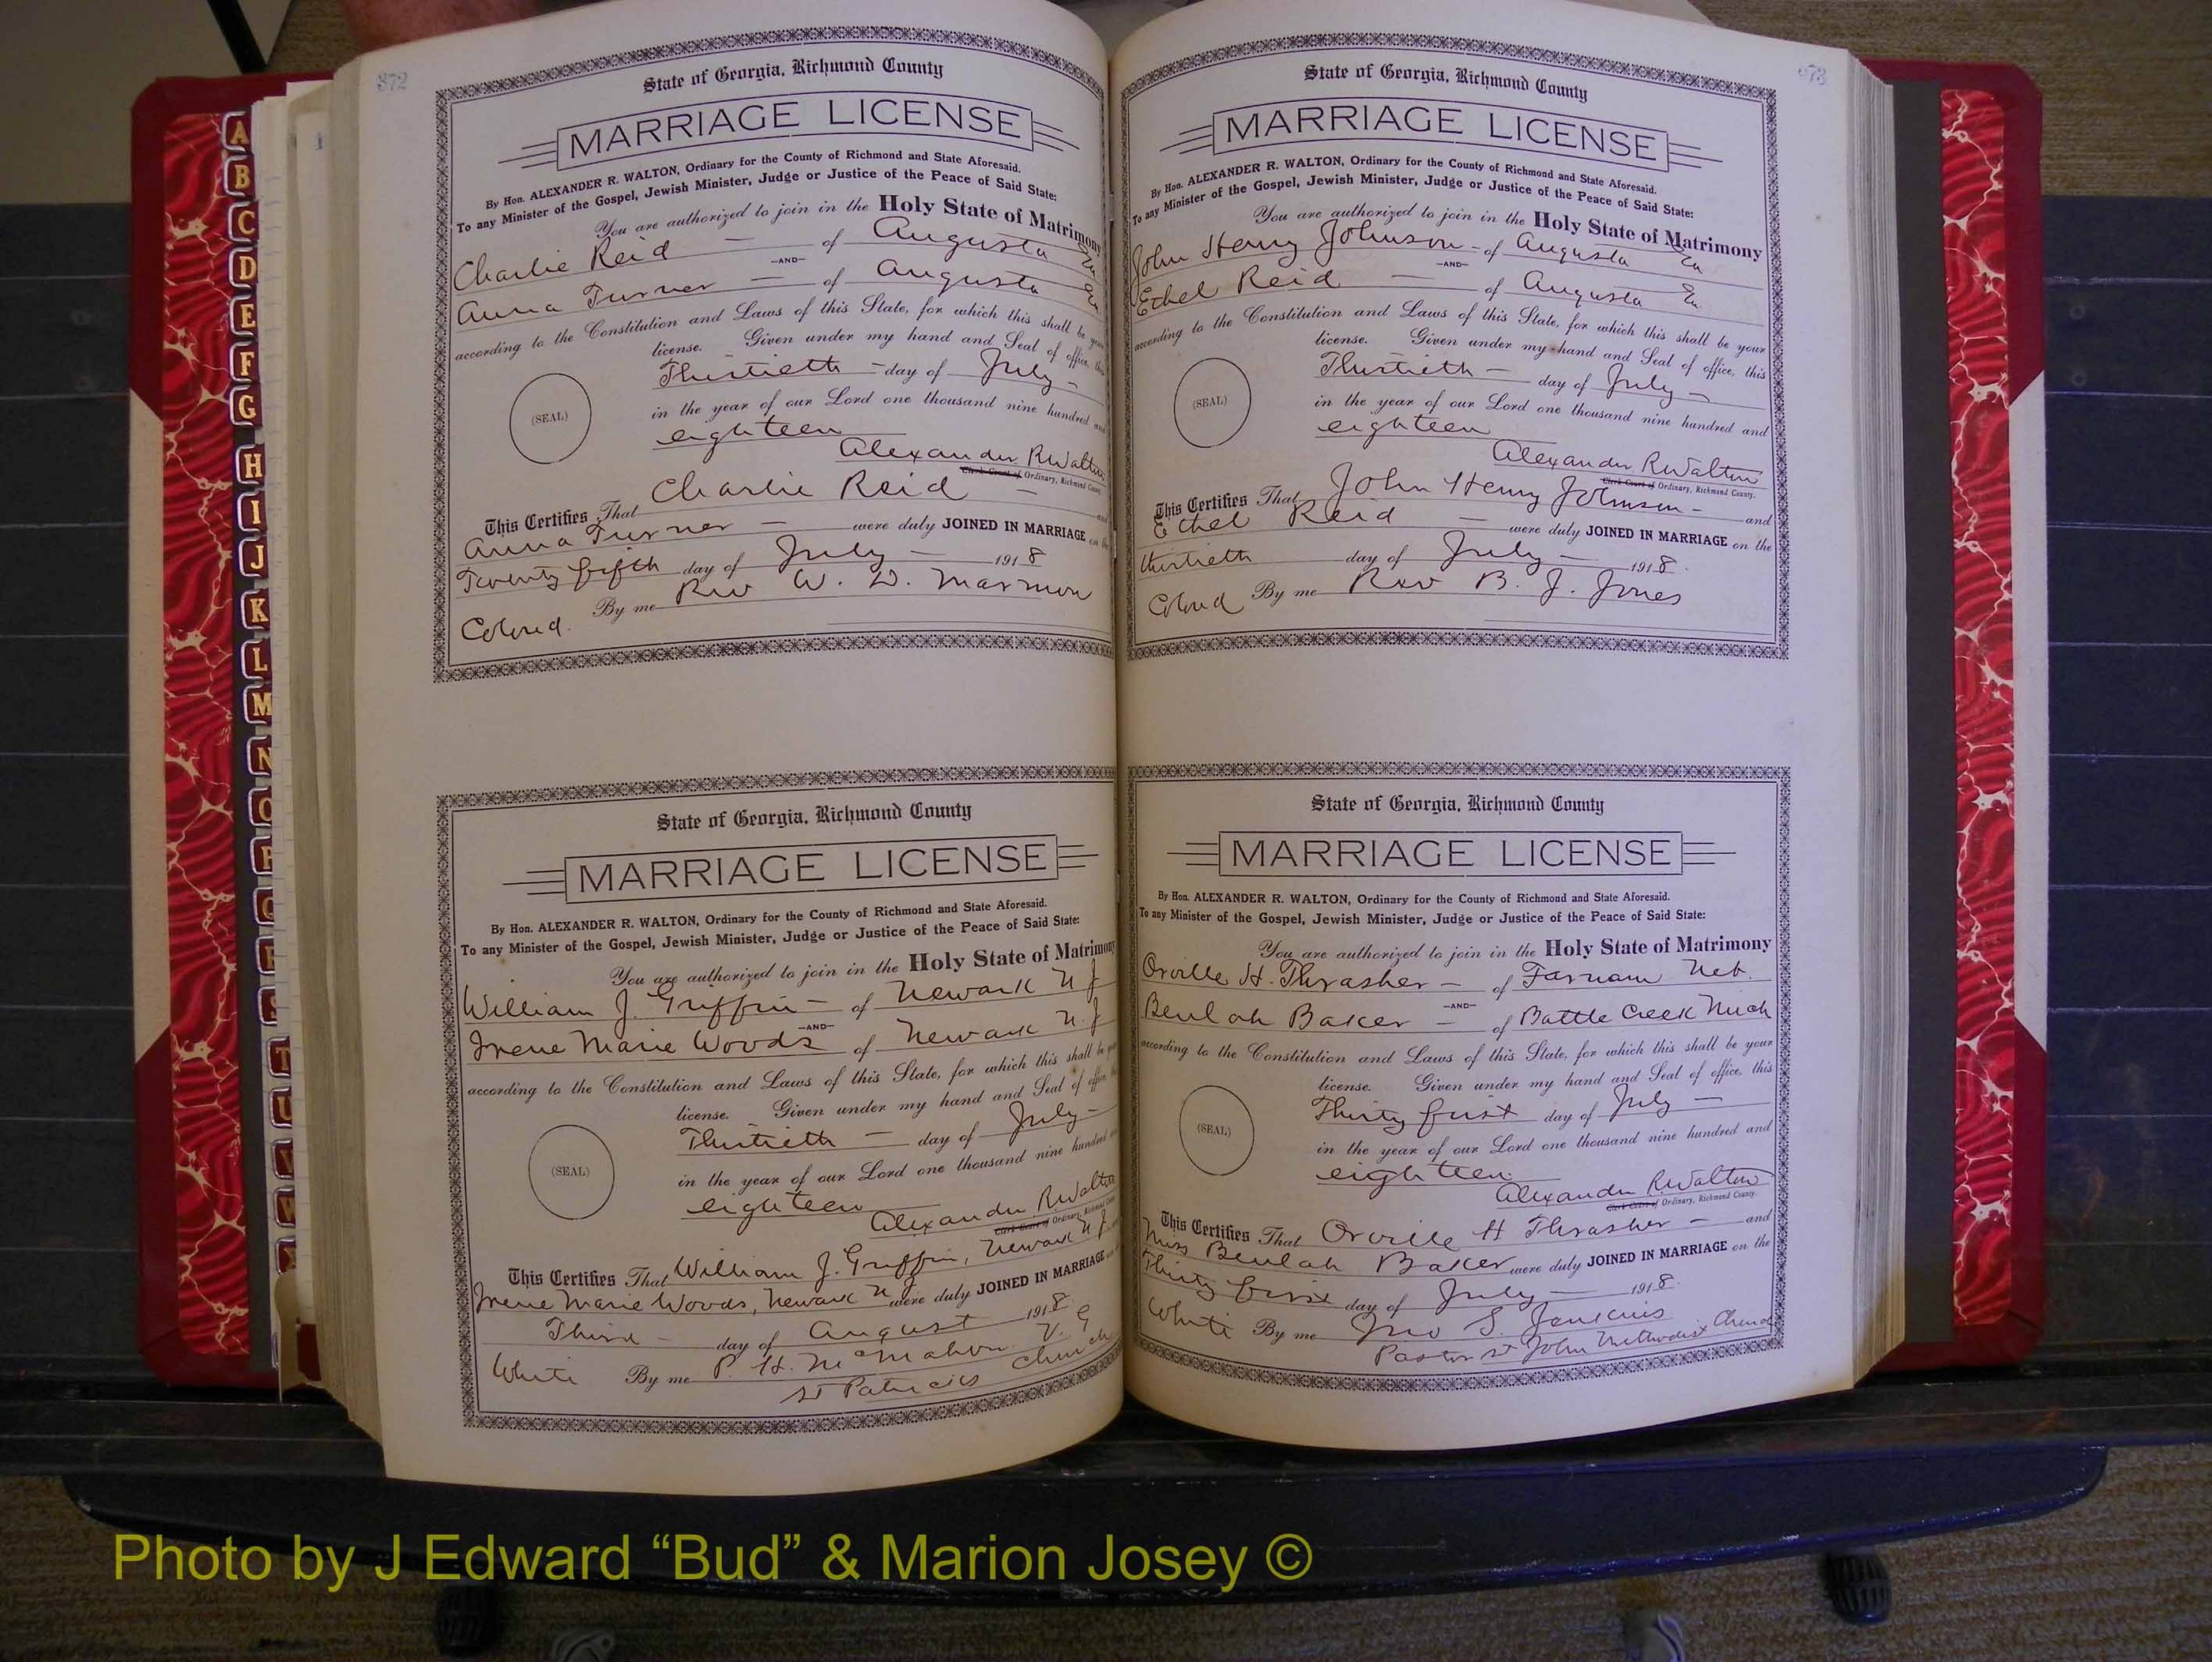 372
State of Georgia, Richmond County
MARRIAGE LICENSE
By Hon. ALEXANDER R. WALTON, Ordinary for the County of Richmond and State Aforesaid.
To any Minister of the Gospel, Jewish Minister, Judge or Justice of the Peace of Said State:
You are authorized to join in the Holy State of Matrimony
Charlie Reid — of Augusta Ga
—AND—
Anna Turner — of Augusta Ga
according to the Constitution and Laws of this State, for which this shall be your
license. Given under my hand and Seal of office, this
Thirtieth — day of July —
(SEAL)
in the year of our Lord one thousand nine hundred and
eighteen
Alexander R Walton
Clerk Court of Ordinary, Richmond County.
This Certifies That Charlie Reid — and
Anna Turner — were duly JOINED IN MARRIAGE on the
Twenty fifth day of July — 1918
Colored. By me Rev W. D. Marmon
State of Georgia, Richmond County
MARRIAGE LICENSE
By Hon. ALEXANDER R. WALTON, Ordinary for the County of Richmond and State Aforesaid.
To any Minister of the Gospel, Jewish Minister, Judge or Justice of the Peace of Said State:
You are authorized to join in the Holy State of Matrimony
William J. Griffin — of Newark N J
—AND—
Irene Marie Woods of Newark N. J
according to the Constitution and Laws of this State, for which this shall be your
license. Given under my hand and Seal of office, this
Thirtieth — day of July —
(SEAL)
in the year of our Lord one thousand nine hundred and
eighteen
Alexander R. Walton
Clerk Court of Ordinary, Richmond County
This Certifies That William J. Griffin, Newark N. J
Irene Marie Woods, Newark N J were duly JOINED IN MARRIAGE on
Third — day of August 1918
White By me P. H. McMahon V. G
St Patricks Church
373
State of Georgia, Richmond County
MARRIAGE LICENSE
By Hon. ALEXANDER R. WALTON, Ordinary for the County of Richmond and State Aforesaid.
To any Minister of the Gospel, Jewish Minister, Judge or Justice of the Peace of Said State:
You are authorized to join in the Holy State of Matrimony
John Henry Johnson — of Augusta Ga
—AND—
Ethel Reid — of Augusta Ga
according to the Constitution and Laws of this State, for which this shall be your
license. Given under my hand and Seal of office, this
Thirtieth — day of July —
(SEAL)
in the year of our Lord one thousand nine hundred and
eighteen
Alexander R Walton
Clerk Court of Ordinary, Richmond County.
This Certifies That John Henry Johnson — and
Ethel Reid — were duly JOINED IN MARRIAGE on the
thirtieth day of July — 1918.
Colored By me Rev B. J. Jones
State of Georgia, Richmond County
MARRIAGE LICENSE
By Hon. ALEXANDER R. WALTON, Ordinary for the County of Richmond and State Aforesaid.
To any Minister of the Gospel, Jewish Minister, Judge or Justice of the Peace of Said State:
You are authorized to join in the Holy State of Matrimony
Orville H. Thrasher — of Farnam Neb.
—AND—
Beulah Baker — of Battle Creek Mich
according to the Constitution and Laws of this State, for which this shall be your
license. Given under my hand and Seal of office, this
Thirty first day of July —
(SEAL)
in the year of our Lord one thousand nine hundred and
eighteen.
Alexander R. Walton
Clerk Court of Ordinary, Richmond County.
This Certifies That Orville H Thrasher — and
Miss Beulah Baker were duly JOINED IN MARRIAGE on the
Thirty first day of July — 1918.
White By me Jno S. Jenkins
Pastor St John Methodist Church
A
B
C
D
E
F
G
H
I
J
K
L
M
N
O
P
Q
R
S
T
U
V
W
Photo by J Edward “Bud” & Marion Josey ©